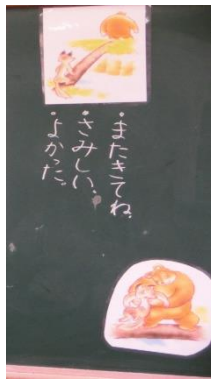 ・またきてね。
・さみしい。
・よかった。